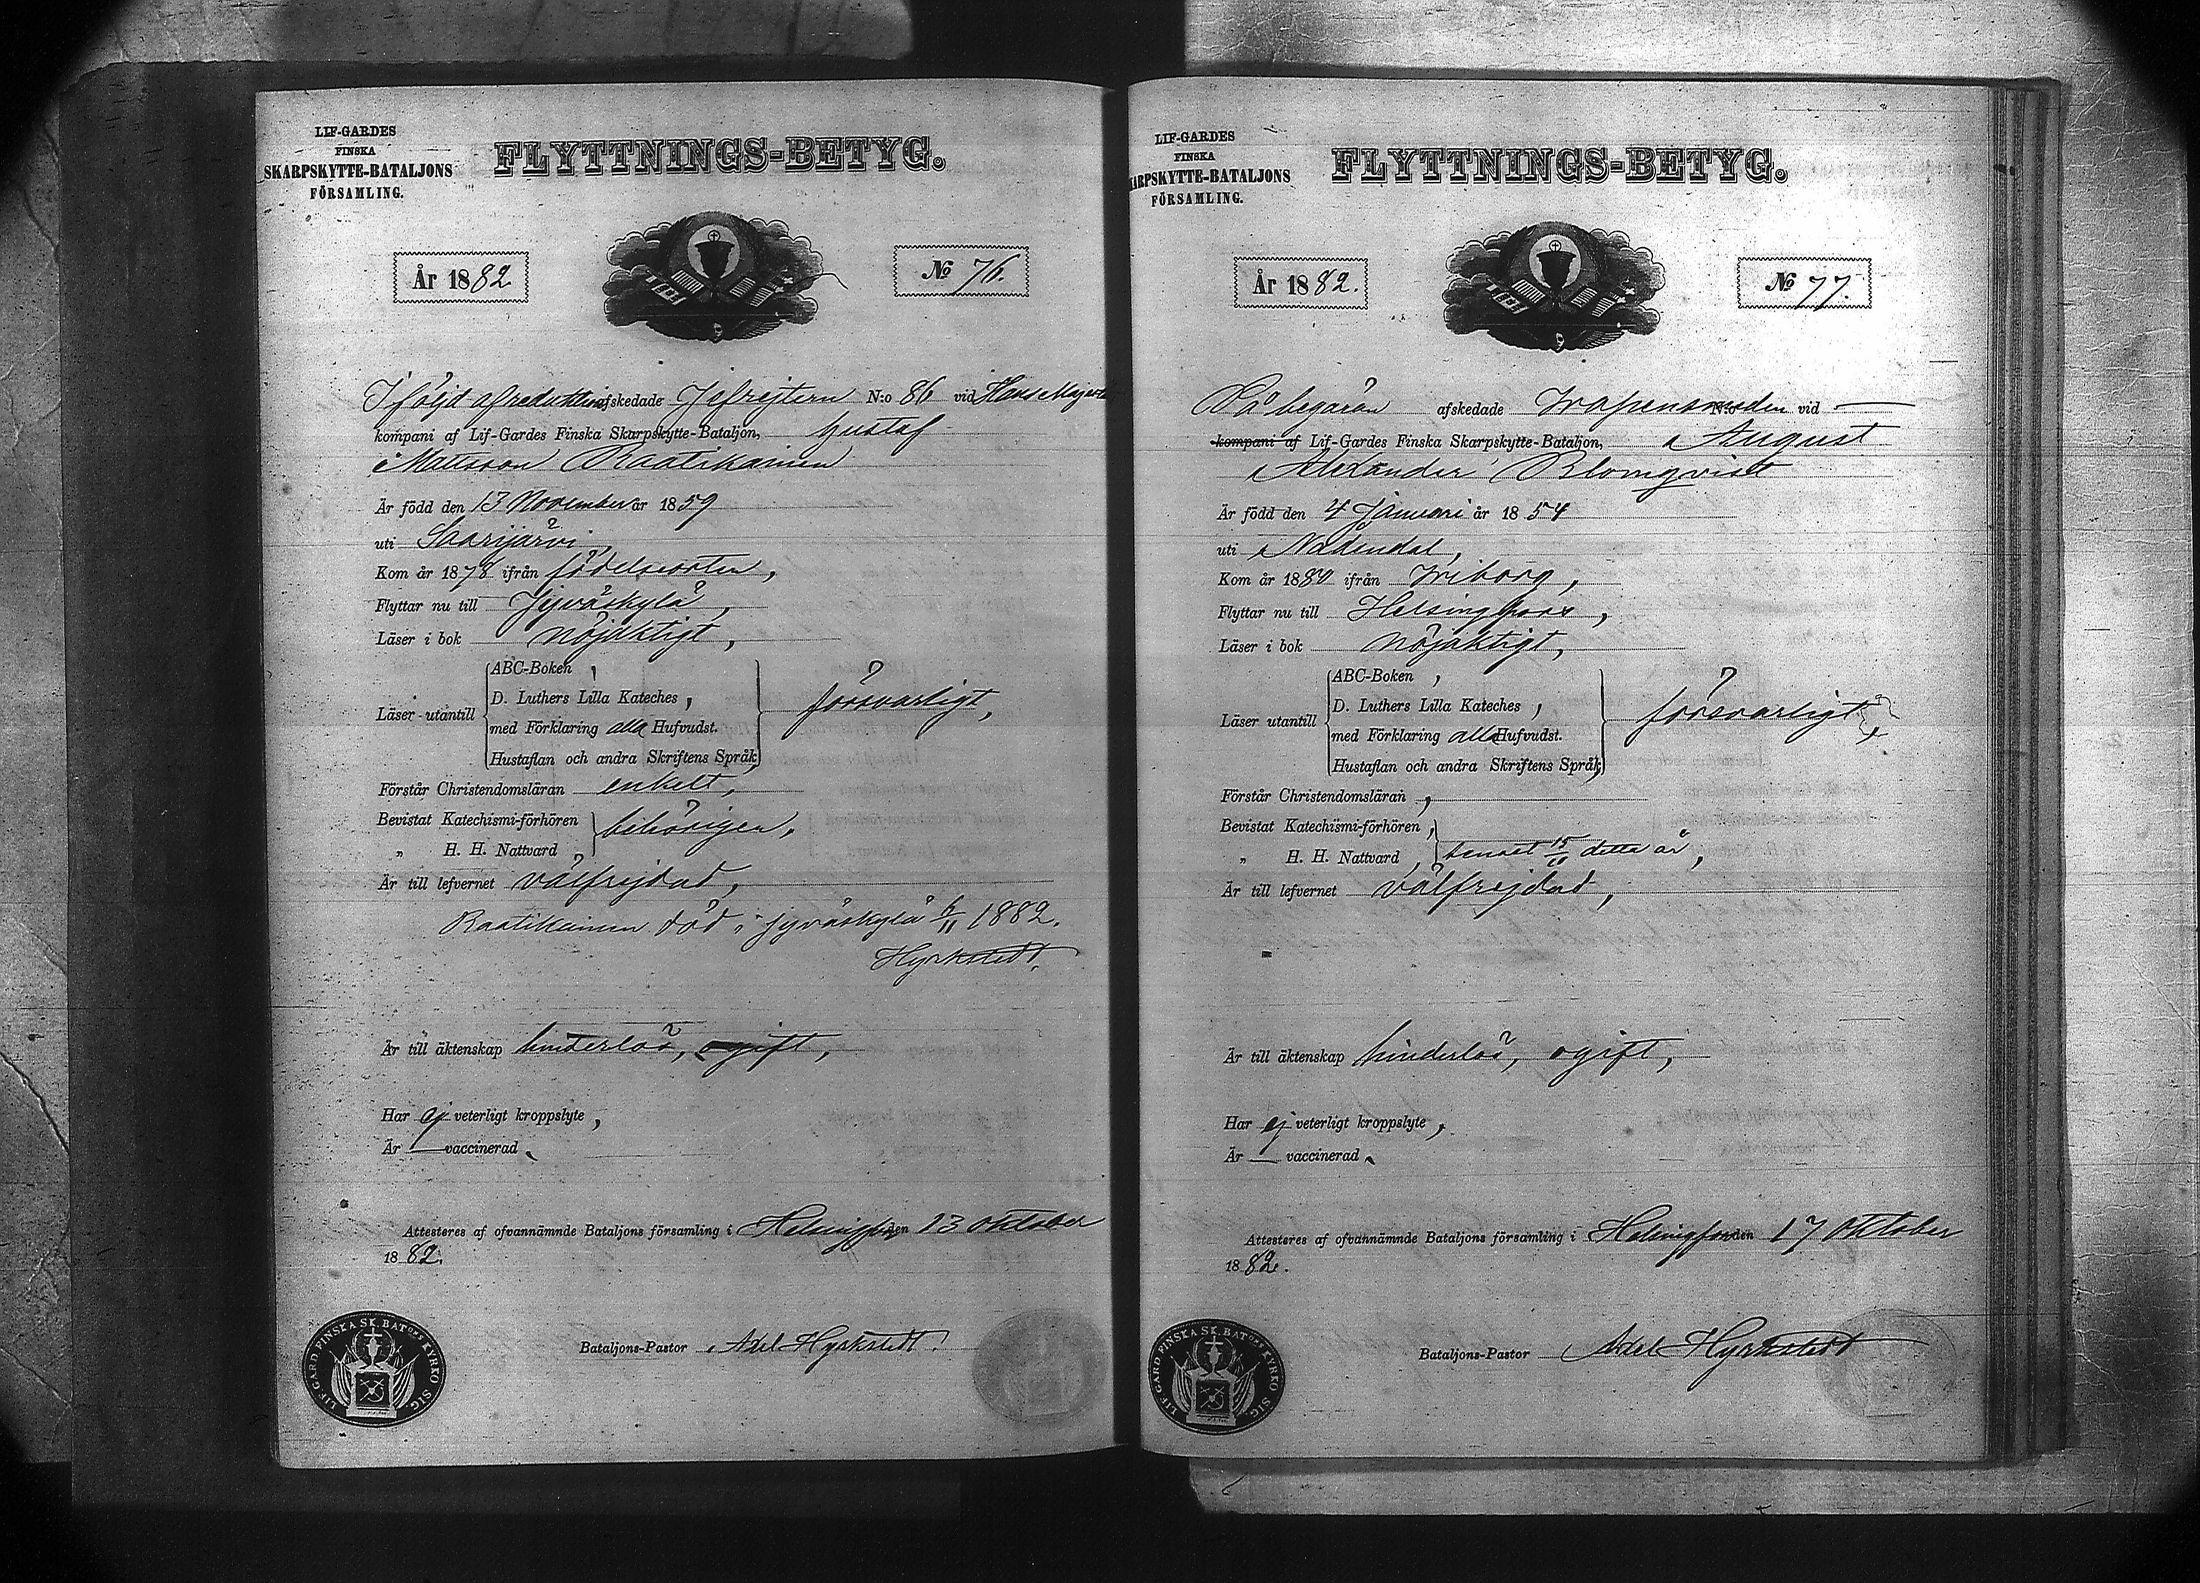 LIF-GARDES
FINSKA
SKARPSKYTTE-BATALJONS
FÖRSAMLING.
FLYTTNINGS-BETYG.
År 1882
№ 76.
I följd af reduktion afskedade Gefrejtern N:o 86 vid Hans Majestäts
kompani af Lif-Gardes Finska Skarpskytte-Bataljon, Gustaf
Mattsson Raatikainen
Är född den 13 November år 1859
uti Saarijärvi,
Kom år 1878 ifrån födelseorten,
Flyttar nu till Jyväskylä,
Läser i bok nöjaktigt,
Läser utantill
ABC-Boken,
D. Luthers Lilla Kateches,
med Förklaring alla Hufvudst.
Hustaflan och andra Skriftens Språk,
försvarligt,
Förstår Christendomsläran enkelt,
Bevistat Katechismi-förhören
„ H. H. Nattvard
behörigen,
Är till lefvernet välfrejdad,
Raatikainen död i Jyväskylä 6/11 1882.
Hyrkstedt.
Är till äktenskap hinderlös, ogift,
Har ej veterligt kroppslyte,
Är — vaccinerad.
Attesteres af ofvannämnde Bataljons församling i Helsingfors den 13 Oktober
1882.
Bataljons-Pastor Axel Hyrkstedt.
LIF GARD FINSKA SK. BATONS KYRKO SIG.
LIF-GARDES
FINSKA
ARPSKYTTE-BATALJONS
FÖRSAMLING.
FLYTTNINGS-BETYG.
År 1882.
№ 77.
På begäran afskedade Wapensmeden N:o vid —
kompani af Lif-Gardes Finska Skarpskytte-Bataljon, August
Alexander Blomqvist
Är född den 4 Januari år 1854
uti Nådendal,
Kom år 1880 ifrån Wiborg,
Flyttar nu till Helsingfors,
Läser i bok nöjaktigt,
Läser utantill
ABC-Boken,
D. Luthers Lilla Kateches,
med Förklaring alla Hufvudst.
Hustaflan och andra Skriftens Språk,
försvarligt,
Förstår Christendomsläran,
Bevistat Katechismi-förhören,
„ H. H. Nattvard,
senast detta år,
Är till lefvernet välfrejdad,
Är till äktenskap hinderlös, ogift,
Har ej veterligt kroppslyte,
Är — vaccinerad.
Attesteres af ofvannämnde Bataljons församling i Helsingfors den 17 Oktober
1882.
Bataljons-Pastor Axel Hyrkstedt
LIF GARD FINSKA SK. BATONS KYRKO SIG.